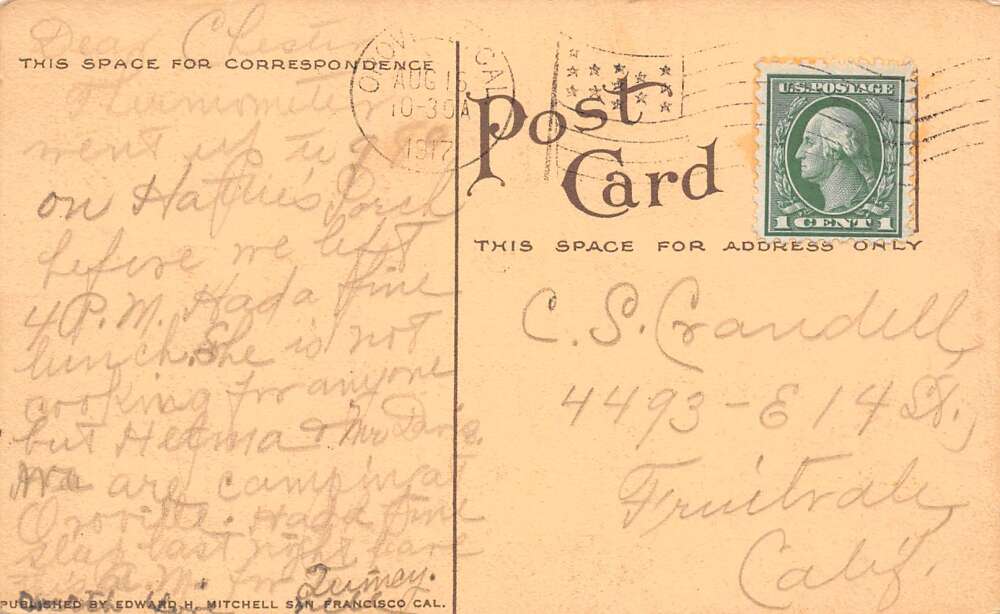 Dear Chester
THIS SPACE FOR CORRESPONDENCE
Thermometer
went up to 98
on Hattie's Porch
before we left
4 P.M. Had a fine
lunch. She is not
cooking for anyone
but Helma & Mr Davis.
We are camping at
Oroville. Had a fine
sleep last night
A.M. for
Quincy.
PUBLISHED BY EDWARD H. MITCHELL SAN FRANCISCO CAL.
OROVILLE CAL.
AUG 15
10-30A
1917
Post
Card
U.S. POSTAGE
1 CENT 1
THIS SPACE FOR ADDRESS ONLY
C. S. Crandell,
4493 - E 14 St.,
Fruitvale
Calif.